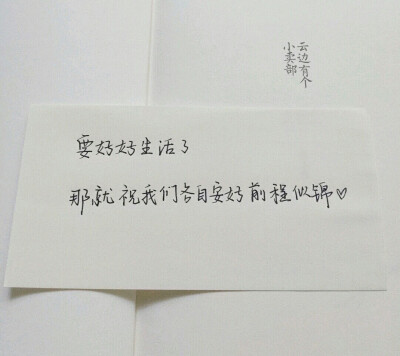 云边有个
小卖部
要好好生活了
那就祝我们各自安好前程似锦♡